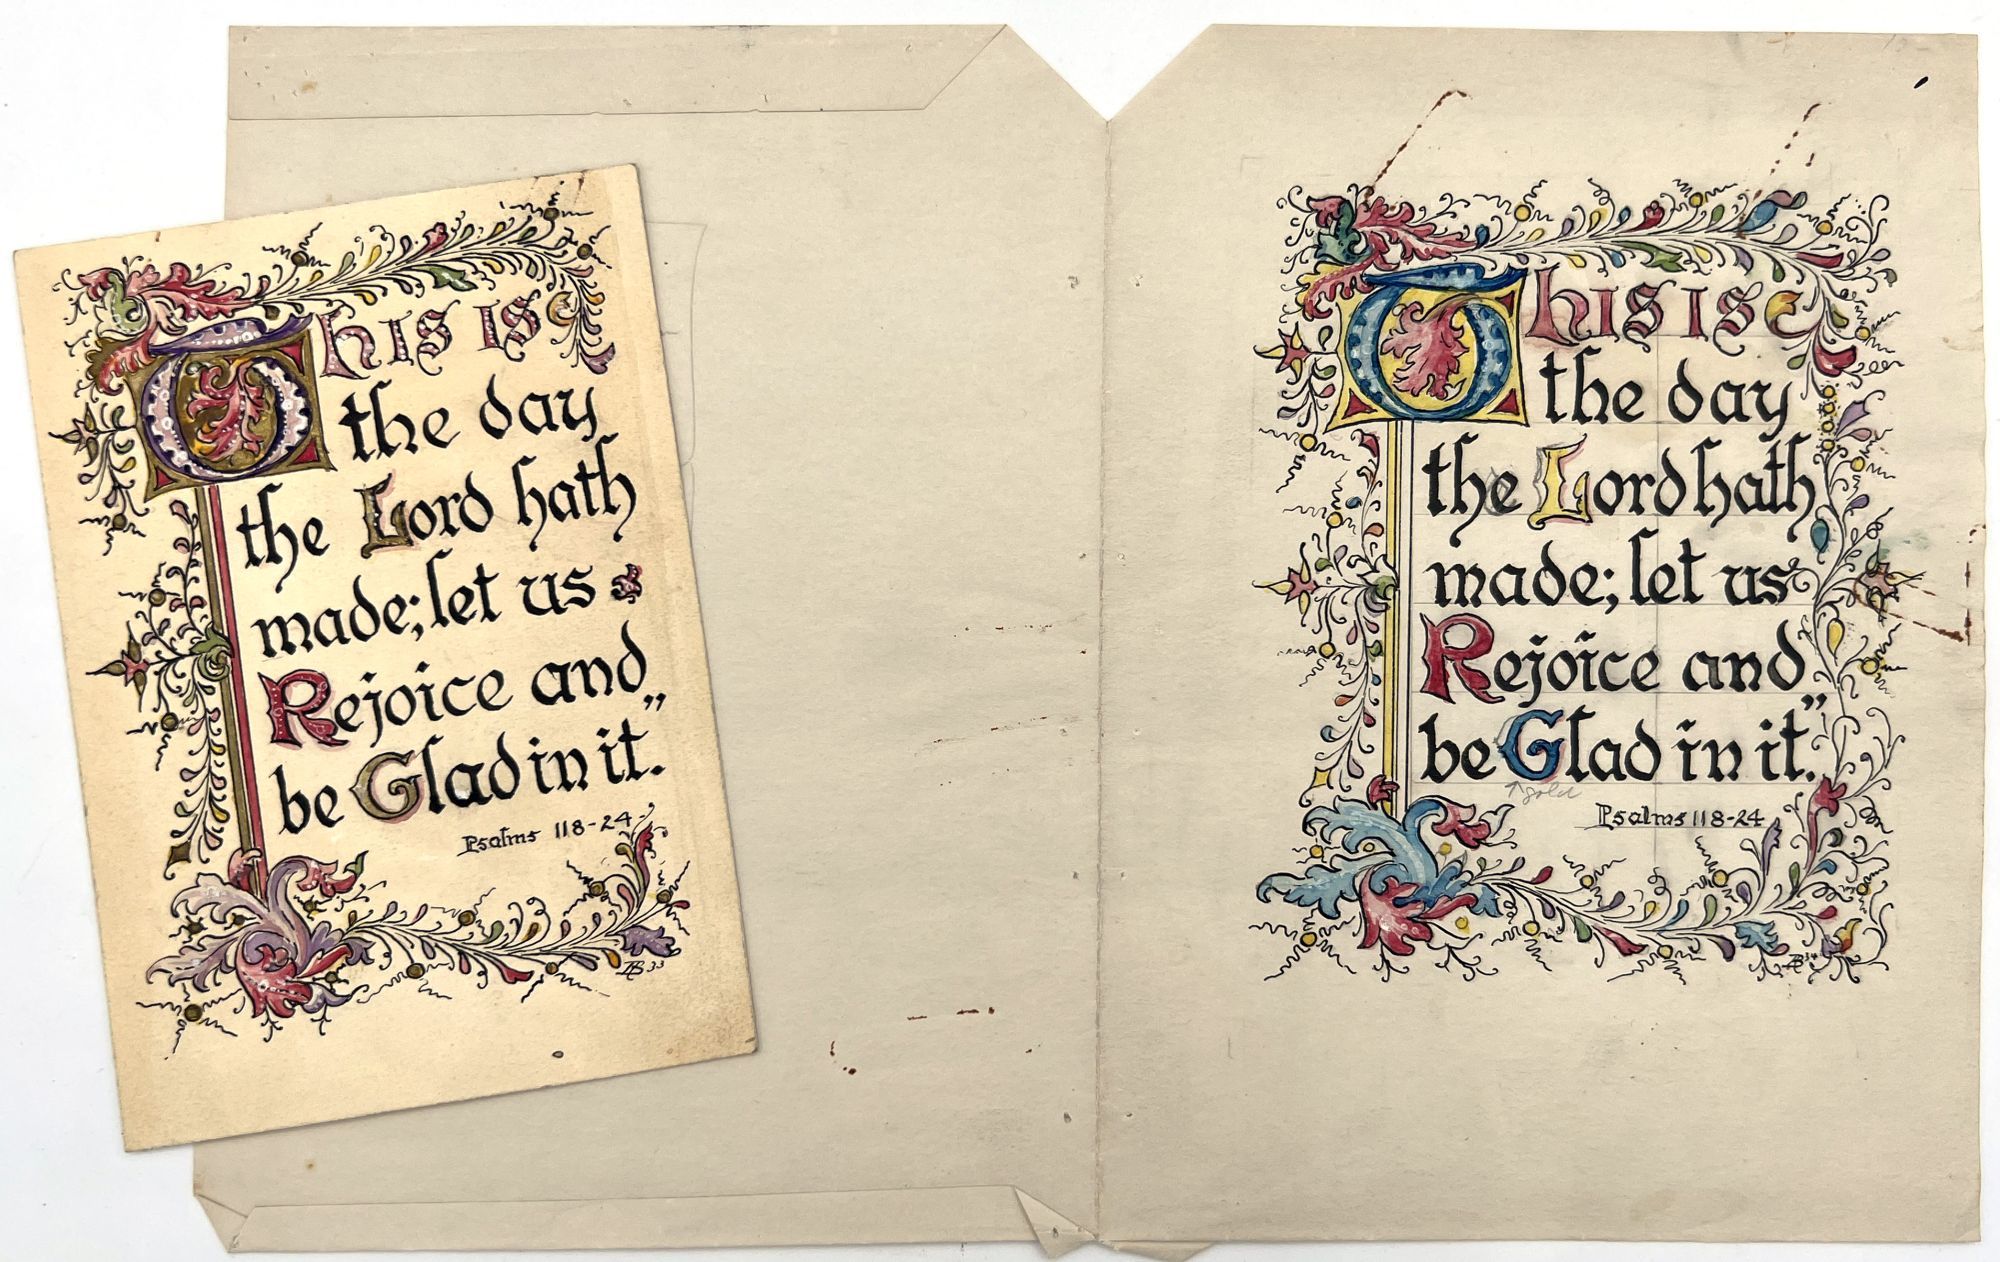 This is
the day
the Lord hath
made; let us
Rejoice and
be Glad in it.”
Psalms 118-24-
AB 33
This is
the day
the Lord hath
made; let us
Rejoice and
be Glad in it.”
↑ gold
Psalms 118-24
AB 34